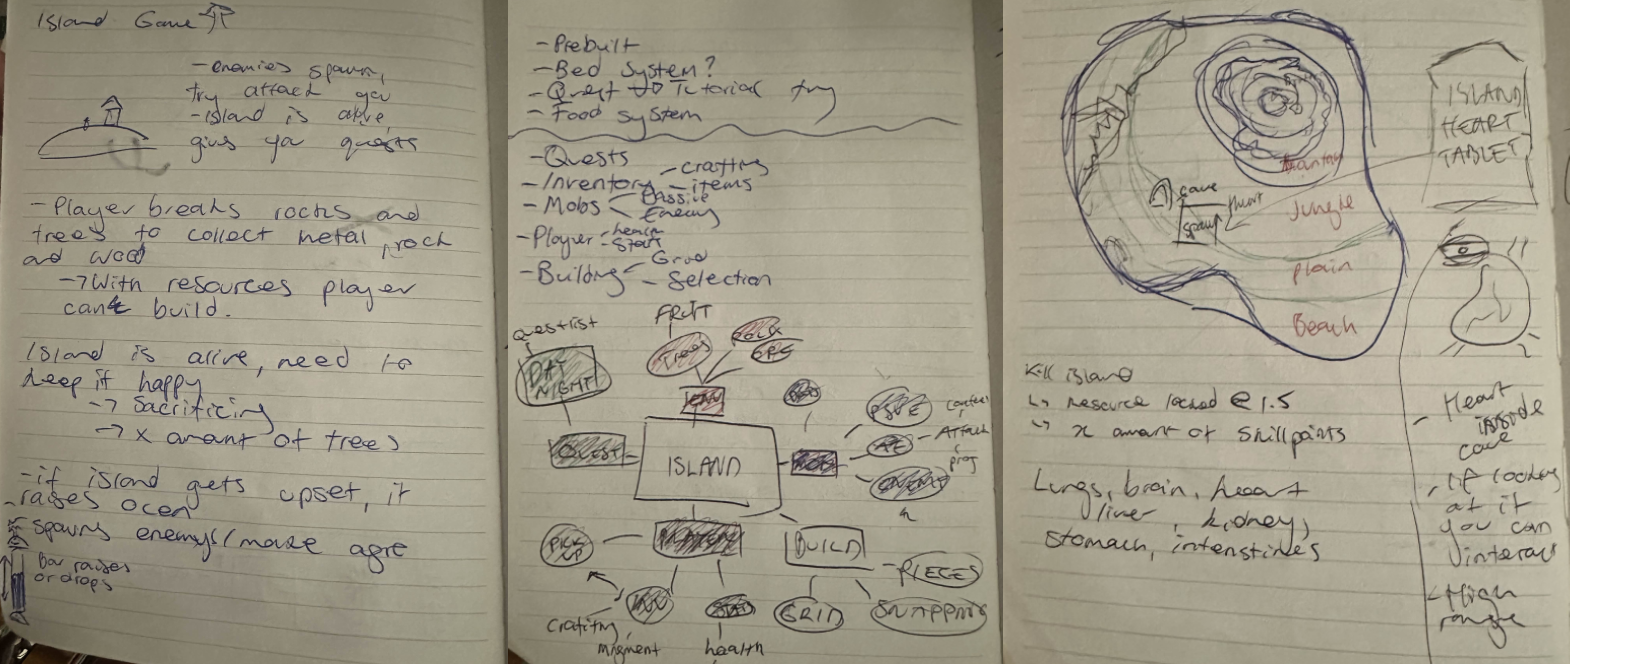 Island Game
-enemies spawn,
try attack you
-island is alive,
gives you quests
-Player breaks rocks and
trees to collect metal, rock
and wood
->With resources player
can build.
Island is alive, need to
keep it happy
-> Sacrificing
-> x amount of trees
-if island gets upset, it
raises ocen
spawns enemys/make agre
Bar raises
or drops
-Prebuilt
-Bed System?
-Quest to Tutorial try
-Food system
-Quests
-Inventory -crafting
-items
-Mobs < Passive
Enemy
-Player -health
-Building < Grid
- Selection
Questlist
FRUIT
DAY
NIGHT
Trees
ROCK
ORE
QUEST
ISLAND
PSVE
AE
- Attack
proj
PICK
UP
BUILD
-PIECES
INV
GRID
SNAPPING
Crafting,
health
ISLAND
HEART
TABLET
cave
heart
spawn
Jungle
Plain
Beach
Kill island
↳ resource locked @ 1.5
↳ x amount of skillpoints
Lungs, brain, heart
liver, kidney,
stomach, intenstines
- Heart
inside
cave
- if looking
at it
you can
interact
- High
range